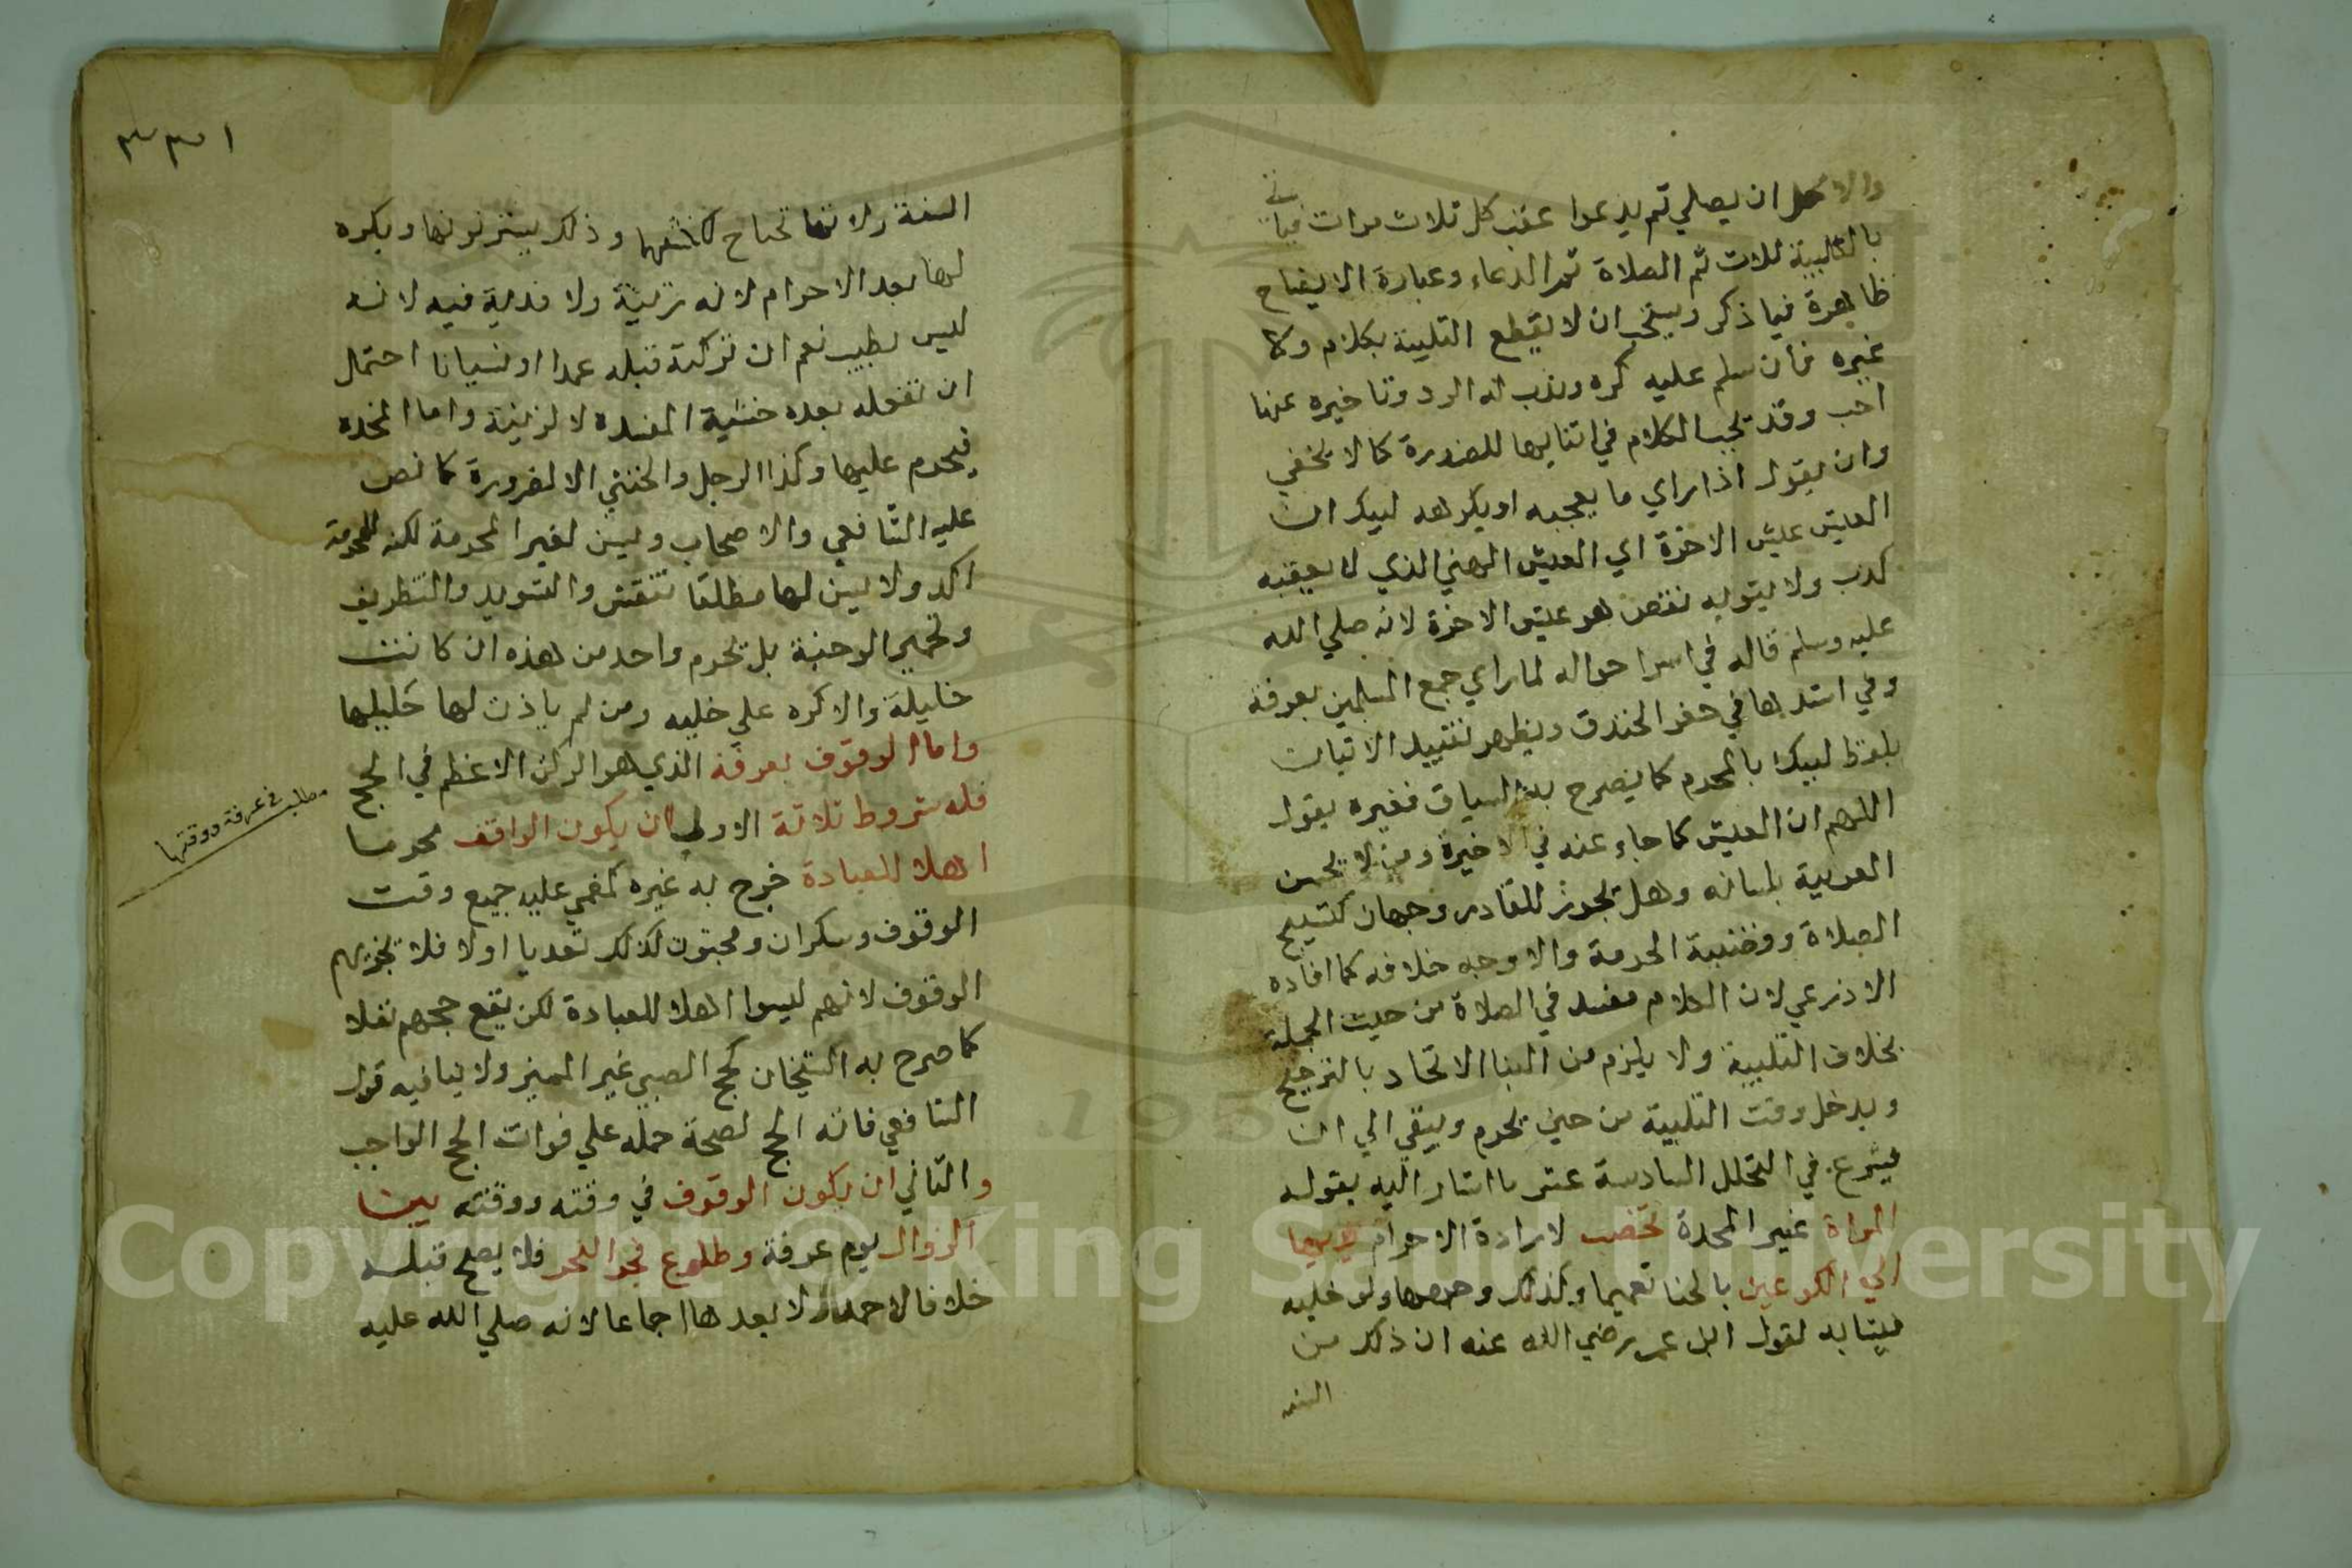 والاكمل ان يصلي ثم يدعوا عقب كل ثلاث مرات فياتي
بالتلبية ثلاث ثم الصلاة ثم الدعاء وعبارة الايضاح
ظاهرة فيما ذكر ويستحب ان لا يقطع التلبية بكلام ولا
غيره فان سلم عليه كره وندب له الرد وتاخيره عنها
احب وقد يجب الكلام في اثنايها للضرورة كما لا يخفي
وان يقول اذا راي ما يعجبه او يكرهه لبيك ان
العيش عيش الاخرة اي العيش الهني الذي لا يعقبه
كدب ولا يشوبه نقص هو عيش الاخرة لانه صلي الله
عليه وسلم قاله في اسرا حواله لما راي جمع المسلمين بعرفة
وفي اشدها في حفر الخندق ويظهر تقييد الاتيان
بلفظ لبيك بالمحرم كما يصرح به السياق فغيره يقول
اللهم ان العيش كما جاء عنه في الاخيرة ومن لا يحسن
العربية بلسانه وهل تجوز للقادر وجهان كتسبيح
الصلاة وقضيبة الحرمة والاوجه خلافه كما افاده
الاذرعي لان الكلام مفسد في الصلاة من حيث الجملة
بخلاف التلبية ولا يلزم من البنا الاتحاد بالترجيح
ويدخل وقت التلبية من حين يحرم ويبقي الي ان
يشرع في التحلل السادسة عشر ما اشار اليه بقوله
المراة غير المحدة تخضب لارادة الاحرام يديها
الي الكوعين بالحنا تعميما وكذلك وجهها ولو خليه
ليتابه لقول ابن عمر رضي الله عنه ان ذلك من
السنة
١٣٣
السنة ولانها تحتاج لكشفهما وذلك يستر لونها ويكره
لها بعد الاحرام لانه زينة ولا فدية فيه لانه
ليس بطيب نعم ان تركته قبله عمدا او نسيانا احتمل
ان تفعله بعده خشية المفسدة لا لزينة واما المحدة
فيحرم عليها وكذا الرجل والخنثي الا لضرورة كما نص
عليه الشافعي والاصحاب ويسن لغير المحرمة لكنه للمحرمة
اكد ولا يسن لها مطلقا تنقش والتسويد والتطريف
وتحمير الوجنة بل يحرم واحد من هذه ان كانت
خليلة والا كره علي خليه ومن لم ياذن لها حليلها
واما الوقوف بعرفة الذي هو الركن الاعظم في الحج
فله شروط ثلاثة الاول ان يكون الواقف محرما
اهلا للعبادة خرج به غيره كمغمي عليه جميع وقت
الوقوف وسكران ومجنون كذلك تعديا اولا فلا يجزيهم
الوقوف لانهم ليسوا اهلا للعبادة لكن يقع حجهم نفلا
كما صرح به الشيخان كحج الصبي غير المميز ولا ينافيه قول
الشافعي فاته الحج لصحة حمله علي فوات الحج الواجب
والثاني ان يكون الوقوف في وقته ووقته بين
الزوال يوم عرفة وطلوع فجر النحر فلا يصح قبله
خلافا لاحمد ولا بعدها اجماعا لانه صلي الله عليه
مطلب في عرفة ووقتها
Copyright © King Saud University
195